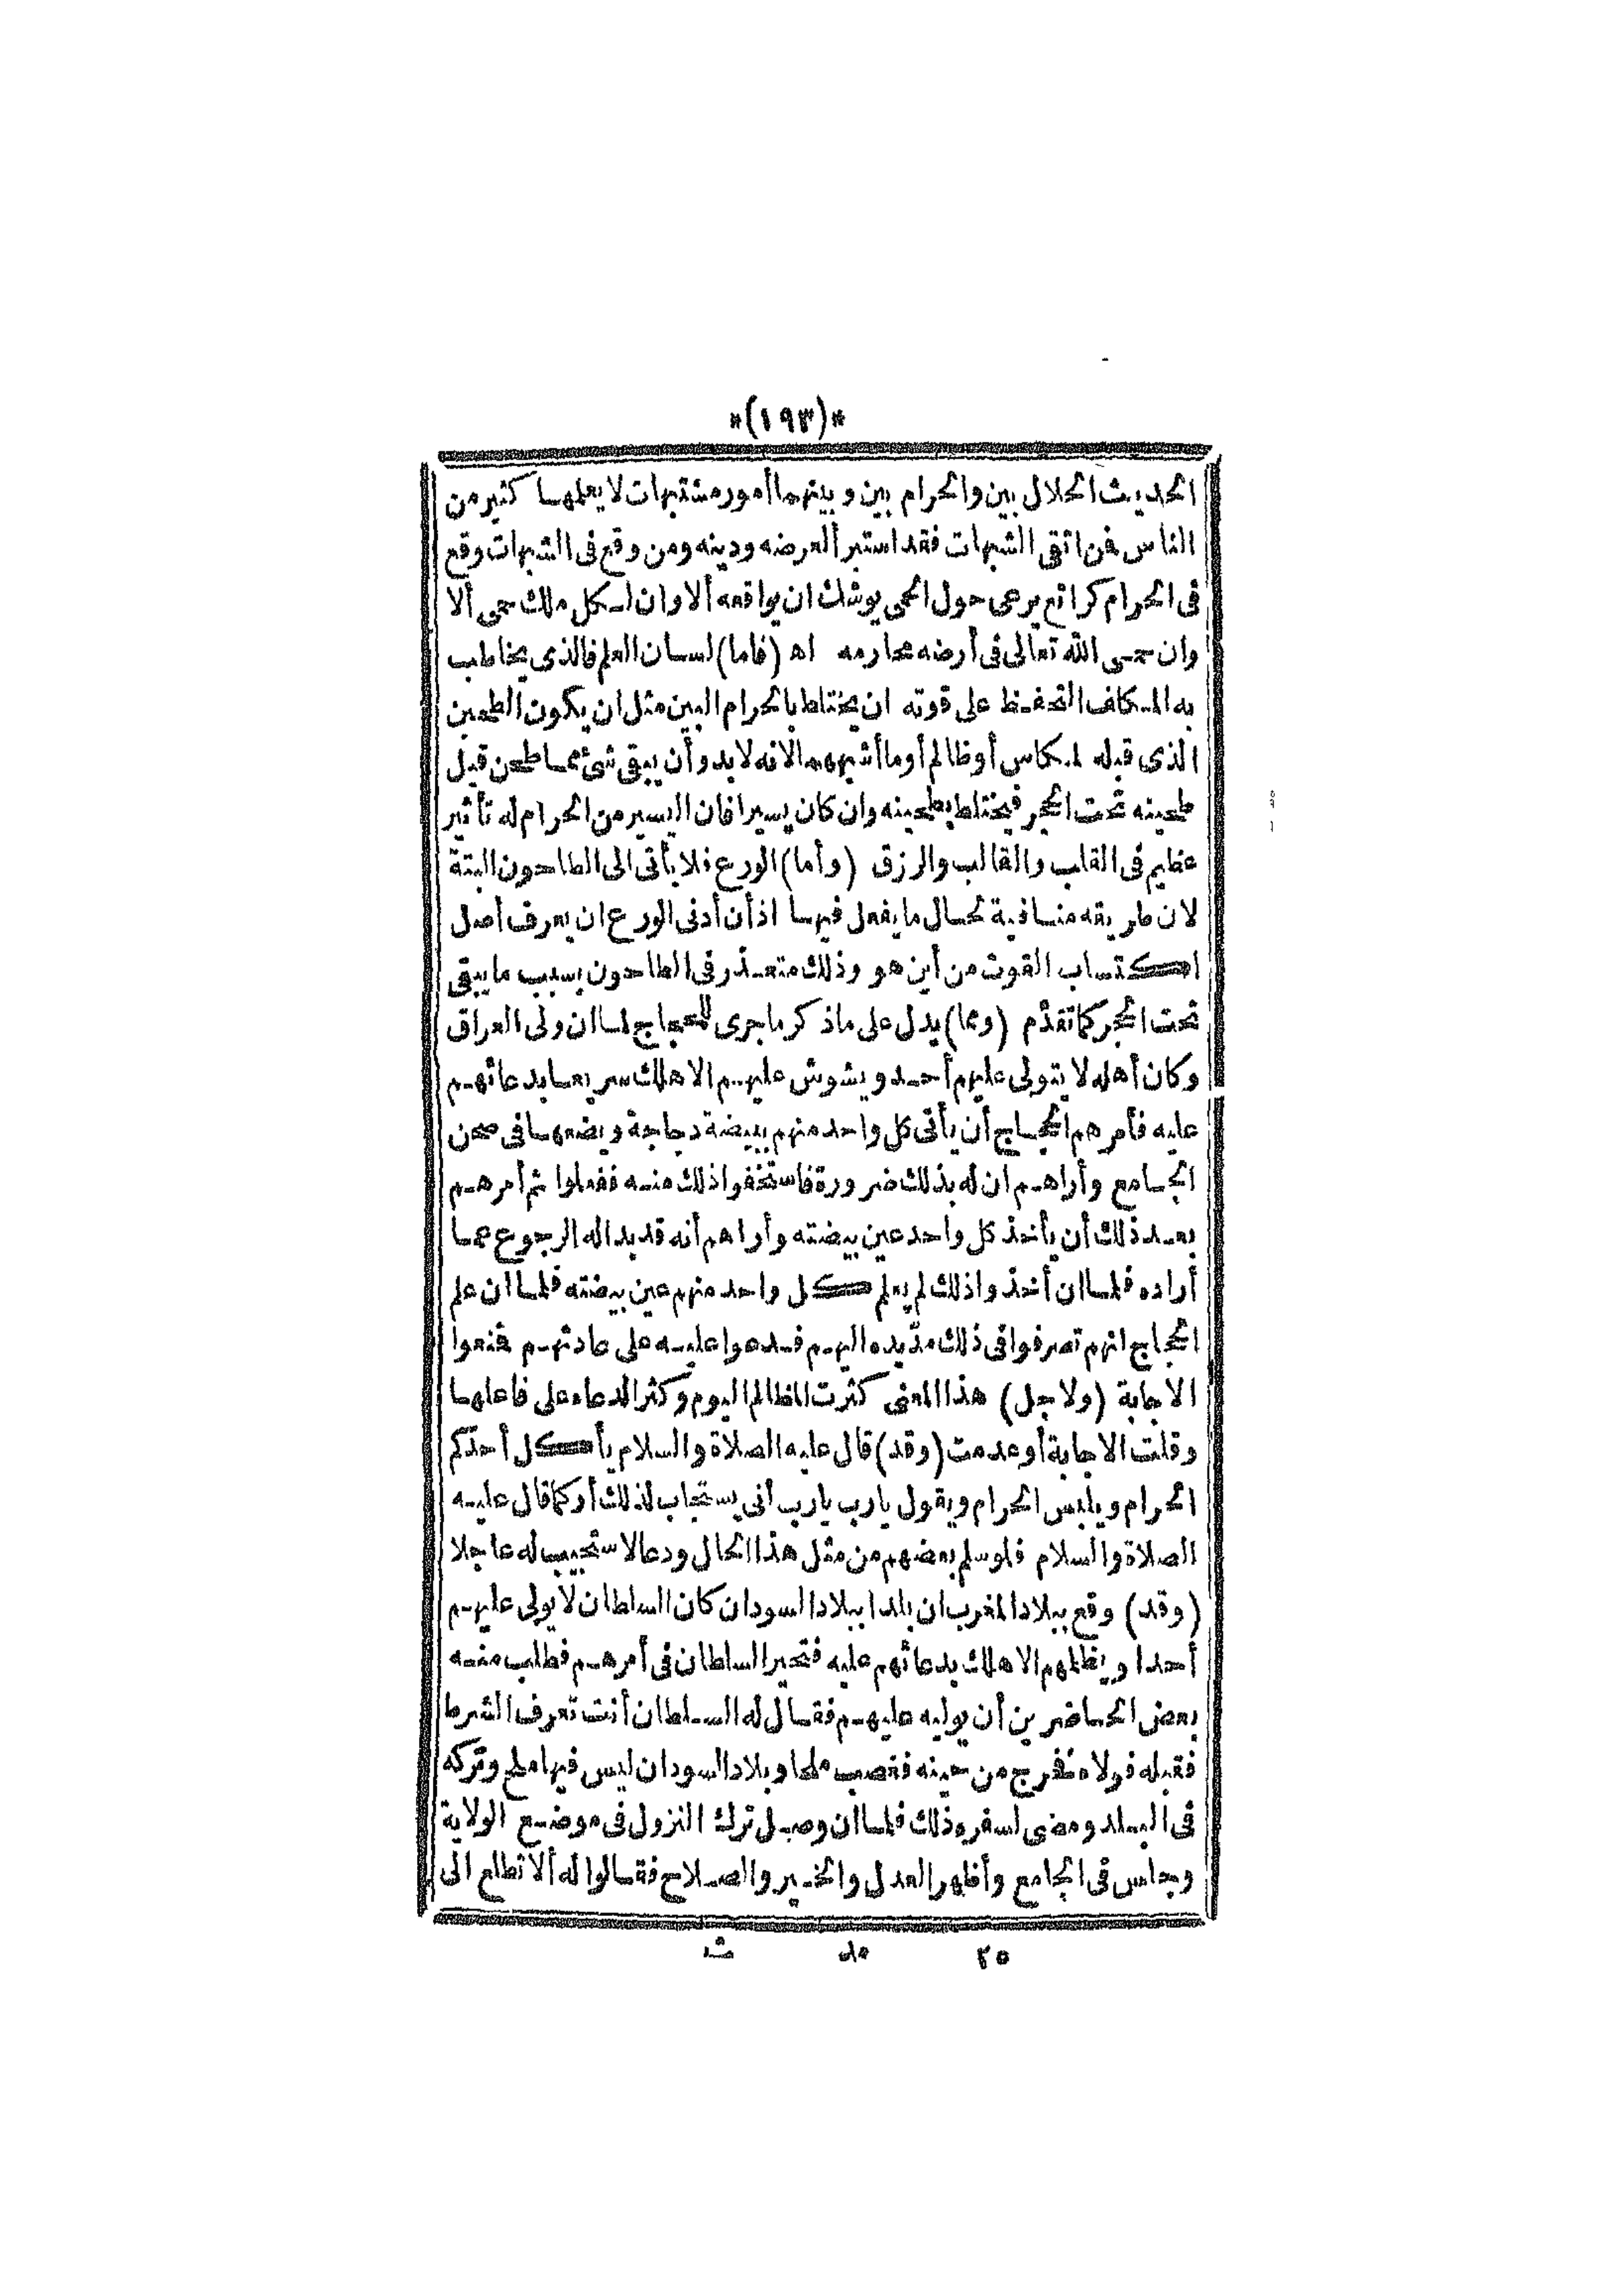 *(١٩٣)*
الحديث الحلال بين والحرام بين وبينهما أمور مشتبهات لا يعلمها كثير من
الناس فمن اتقى الشبهات فقد استبرأ لعرضه ودينه ومن وقع فى الشبهات وقع
فى الحرام كراتع يرعى حول الحمى يوشك ان يواقعه ألا وان لكل ملك حمى ألا
وان حمى الله تعالى فى أرضه محارمه اه (فاما) لسان العلم فالذى يخاطب
به المكلف التحفظ على قوته ان يختلط بالحرام البين مثل ان يكون الطحين
الذى قبله لمكاس أو ظالم أو ما أشبههما لانه لابد وأن يبقى شئ مما طحن قبل
طحينه تحت الحجر فيختلط بطحينه وان كان يسيرا فان اليسير من الحرام له تأثير
عظيم فى القلب والقالب والرزق (وأما) الورع فلا يأتى الى الطاحون البتة
لان طريقه منافية لحال ما يفعل فيها اذ أن أدنى الورع ان يعرف أصل
اكتساب القوت من أين هو وذلك متعذر فى الطاحون بسبب ما يبقى
تحت الحجر كما تقدّم (ومما) يدل على ماذكر ما جرى للحجاج لما ان ولى العراق
وكان أهله لا يتولى عليهم أحد ويشوش عليهم الا هلك سريعا بدعائهم
عليه فأمرهم الحجاج أن يأتى كل واحد منهم ببيضة دجاجة ويضعها فى صحن
الجامع وأراهم ان له بذلك ضرورة فاستخفوا ذلك منه ففعلوا ثم أمرهم
بعد ذلك أن يأخذ كل واحد عين بيضته وأراهم أنه قد بدا له الرجوع عما
أراده فلما ان أخذوا ذلك لم يعلم كل واحد منهم عين بيضته فلما ان علم
الحجاج انهم تصرفوا فى ذلك مدّ يده اليهم فدعوا عليه على عادتهم فمنعوا
الاجابة (ولاجل) هذا المعنى كثرت المظالم اليوم وكثر الدعاء على فاعلها
وقلت الاجابة أو عدمت (وقد) قال عليه الصلاة والسلام يأكل أحدكم
الحرام ويلبس الحرام ويقول يارب يارب أنى يستجاب لذلك أو كما قال عليه
الصلاة والسلام فلو سلم بعضهم من مثل هذا الحال ودعا لاستجيب له عاجلا
(وقد) وقع ببلاد المغرب ان بلدا ببلاد السودان كان السلطان لا يولى عليهم
أحدا ويظلمهم الا هلك بدعائهم عليه فتحير السلطان فى أمرهم فطلب منه
بعض الحاضرين أن يوليه عليهم فقال له السلطان أنت تعرف الشرط
فقبله فولاه فخرج من حينه فغصب ملحا وبلاد السودان ليس فيها ملح وتركه
فى البلد ومضى لسفره ذلك فلما ان وصل ترك النزول فى موضع الولاية
وجلس فى الجامع وأظهر العدل والخير والصلاح فقالوا له ألا تطلع الى
٢٥ مد ث